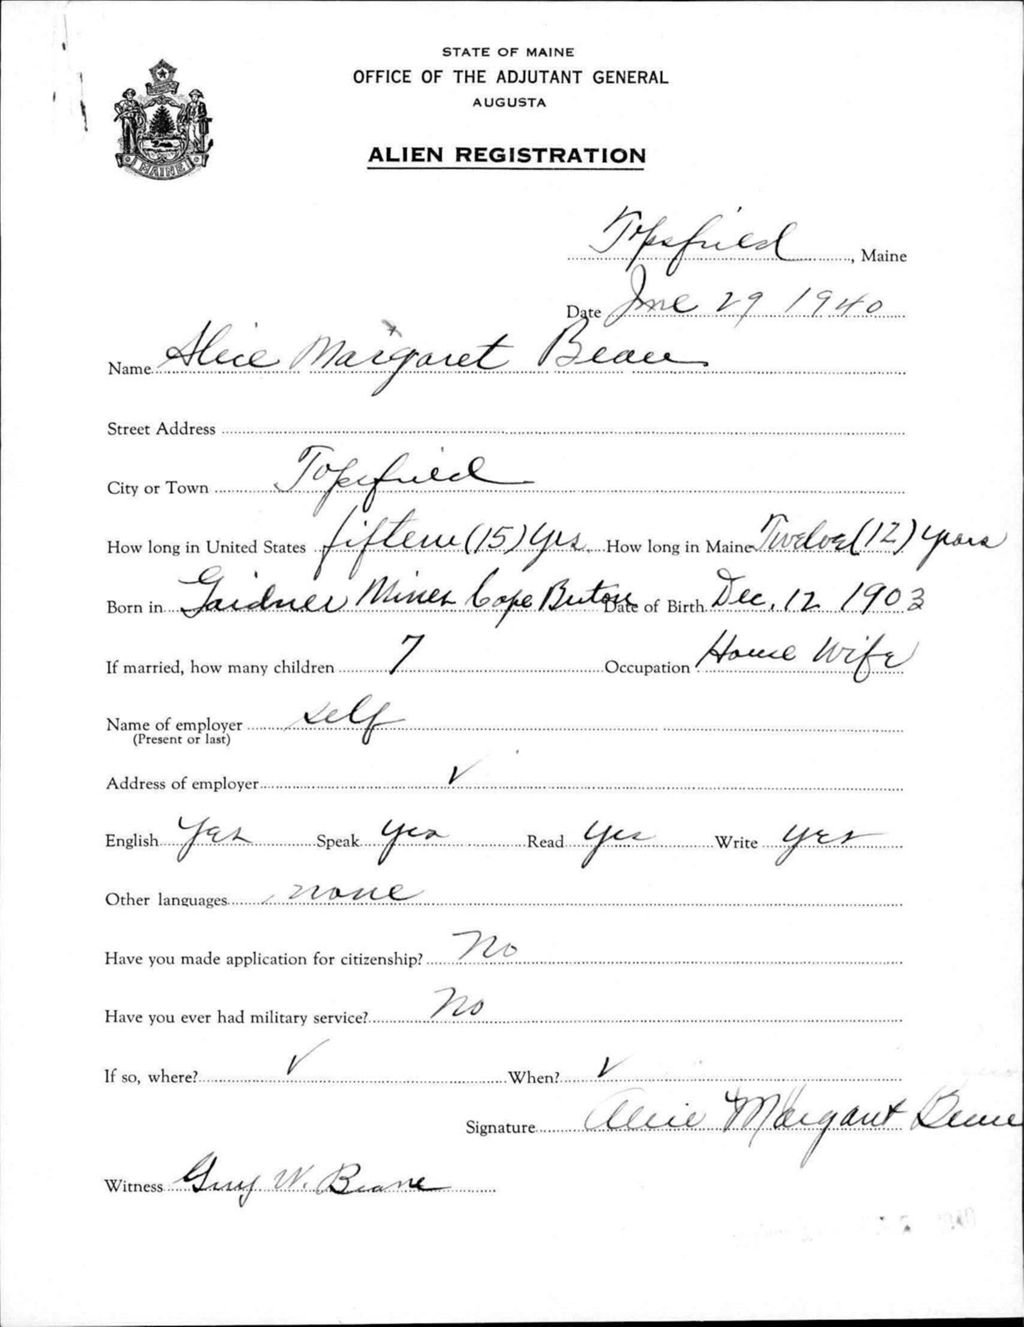 STATE OF MAINE
OFFICE OF THE ADJUTANT GENERAL
AUGUSTA
ALIEN REGISTRATION
MAINE
Topsfield, Maine
Date June 29 1940
Name Alice Margaret Beane
Street Address
City or Town Topsfield
How long in United States fifteen (15) yrs How long in Maine Twelve (12) years
Born in Gardner Mines Cape Breton Date of Birth Dec. 12 1903
If married, how many children 7 Occupation House Wife
Name of employer self
(Present or last)
Address of employer ✓
English Yes Speak yes Read yes Write yes
Other languages none
Have you made application for citizenship? No
Have you ever had military service? No
If so, where? ✓ When? ✓
Signature Alice Margaret Beane
Witness Guy W. Beane